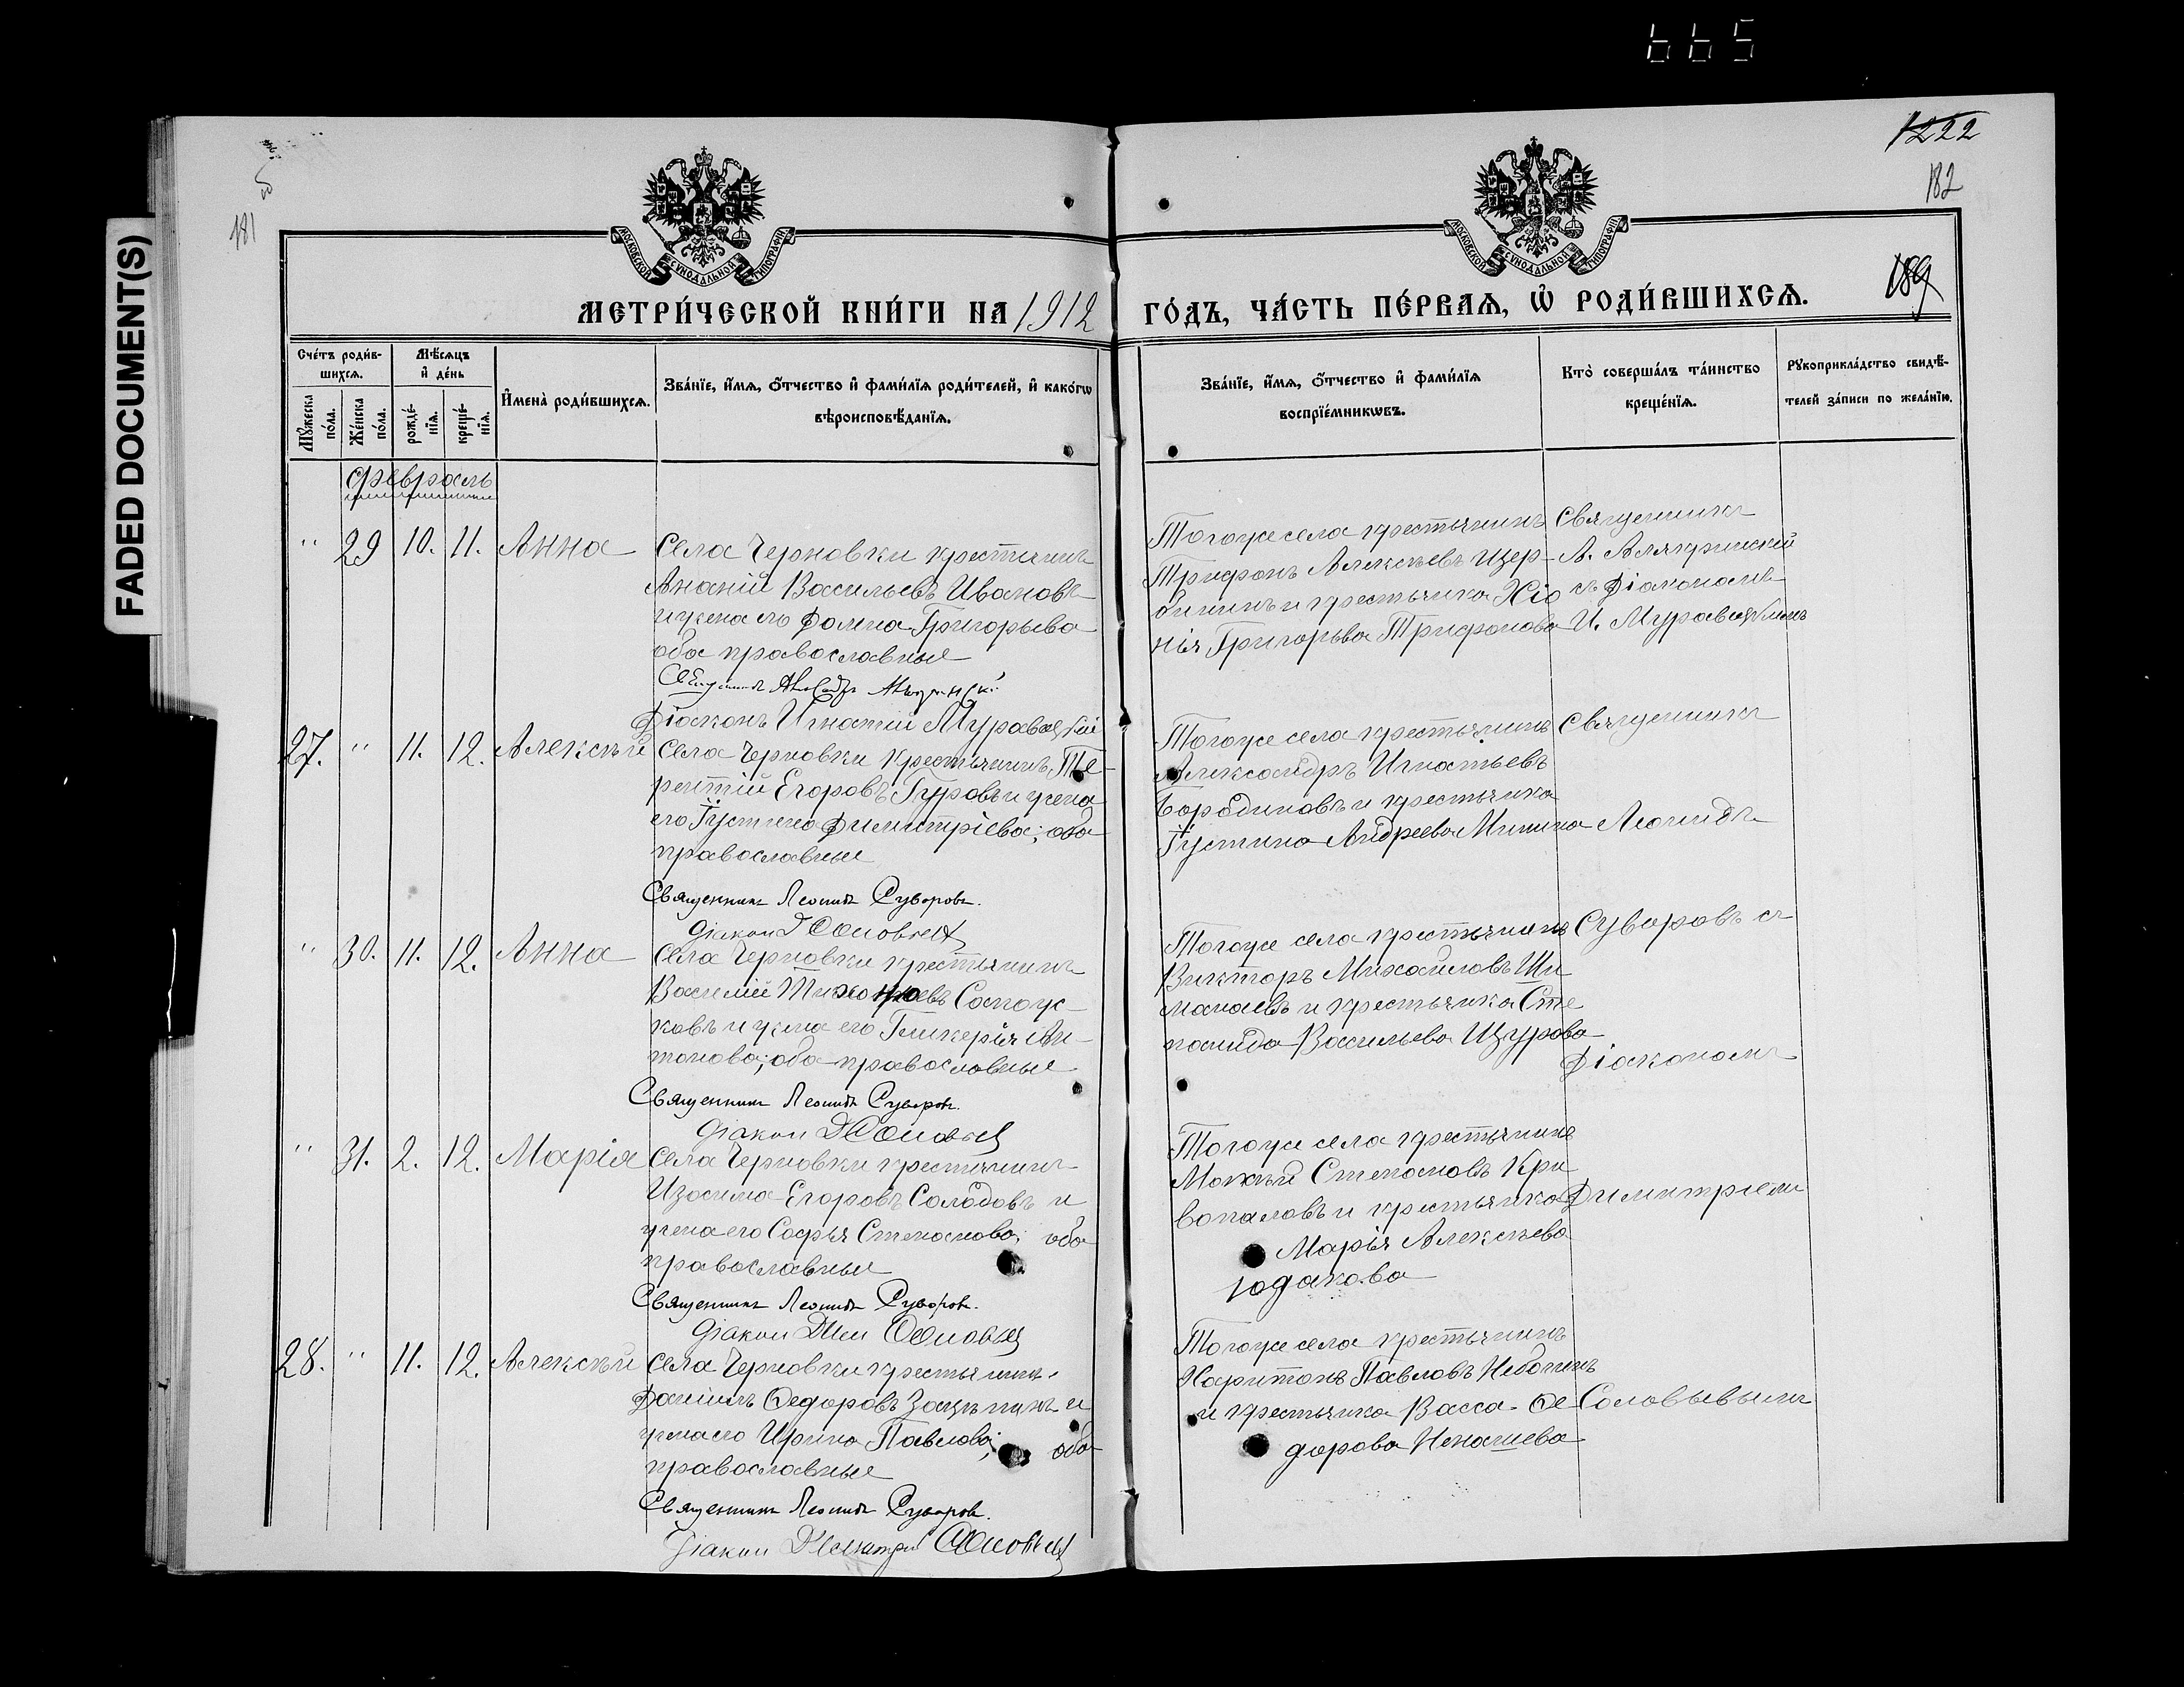 665
FADED DOCUMENT(S)
181
1222
182
189
МОСКОВСКОЙ СѴНОДАЛЬНОЙ ТИПОГРАФІИ
МОСКОВСКОЙ СѴНОДАЛЬНОЙ ТИПОГРАФІИ
МЕТРИ́ЧЕСКОЙ КНИ́ГИ НА 1912 ГО́ДЪ, ЧА́СТЬ ПЕ́РВАѦ, Ѡ҆ РОДИ́ВШИХСѦ.
Сче́тъ роди́в-
шихсѧ.
Мꙋ́жеска по́ла.
Же́нска по́ла.
Мѣ́сѧцъ
и҆ де́нь
рожде́-
нїѧ.
креще́-
нїѧ.
И҆мена̀ роди́вшихсѧ.
Зва́нїе, и҆́мѧ, ѻ҆́тчество и҆ фами́лїѧ роди́телей, и҆ како́гѡ
вѣроисповѣ́данїѧ.
Зва́нїе, и҆́мѧ, ѻ҆́тчество и҆ фами́лїѧ
воспрїе́мникѡвъ.
Кто̀ соверша́лъ та́инство
креще́нїѧ.
Рꙋкоприкла́дство свидѣ́-
телей за́писи по жела́нїю.
Февраль
" 29 10. 11. Анна
Села Черновки крестьянинъ
Ананій Васильевъ Ивановъ
и жена его Домна Григорьева
оба православные
Священникъ
Діаконъ Игнатій
Тогоже села крестьянинъ
Трифонъ Алексѣевъ Щер-
бининъ и крестьянка Хіо
нія Григорьева Трифонова
Священникъ
А. Алякринскій
съ Діакономъ
И.
27. " 11. 12. Алексѣй
Села Черновки крестьянинъ Те-
рентій Егоровъ Гуровъ и жена
его Іустина Димитріева; оба
православные
Священникъ Леонидъ Суворовъ.
Діаконъ Д Соловьев
Тогоже села крестьянинъ
Александръ Игнатьевъ
Бородиновъ и крестьянка
Іустина Андреева Минина
Священникъ
Леонидъ
" 30. 11. 12. Анна
Села Черновки крестьянинъ
Василій Тихоновъ Сапож-
ковъ и жена его Гликерія Ан-
тонова; оба православные
Священникъ Леонидъ Суворовъ.
Діаконъ Д Соловьев
Тогоже села крестьянинъ
Викторъ Михайловъ Ши
манаевъ и крестьянка Сте
понида Васильева Щурова
Суворовъ съ
Діакономъ
" 31. 2. 12. Марія
Села Черновки крестьянинъ
Изосима Егоровъ Солодовъ и
жена его Софья Степанова; оба
православные
Священникъ Леонидъ Суворовъ.
Діаконъ Дим Соловьев
Тогоже села крестьянинъ
Мокѣй Степановъ Кри
вопаловъ и крестьянка
Марія Алексѣева
Юдакова
Димитріемъ
28. " 11. 12. Алексѣй
Села Черновки крестьянинъ
Даніилъ Федоровъ Зацѣпинъ и
жена его Ирина Павлова; оба
православные
Священникъ Леонидъ Суворовъ.
Діаконъ Димитрій Соловьев
Тогоже села крестьянинъ
Харитонъ Павловъ
и крестьянка Васса Фе
дорова Ненашева
Соловьевымъ